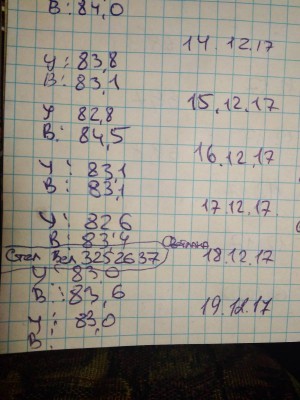 В: 84,0
14.12.17
У: 83,8
В: 83,1
15.12.17
У 82,8
В: 84,5
16.12.17
У: 83,1
В: 83,1
17.12.17
У: 82,6
В: 83,4
Светлана
3252637
18.12.17
У: 83,0
В: 83,6
19.12.17
У: 83,0
В: